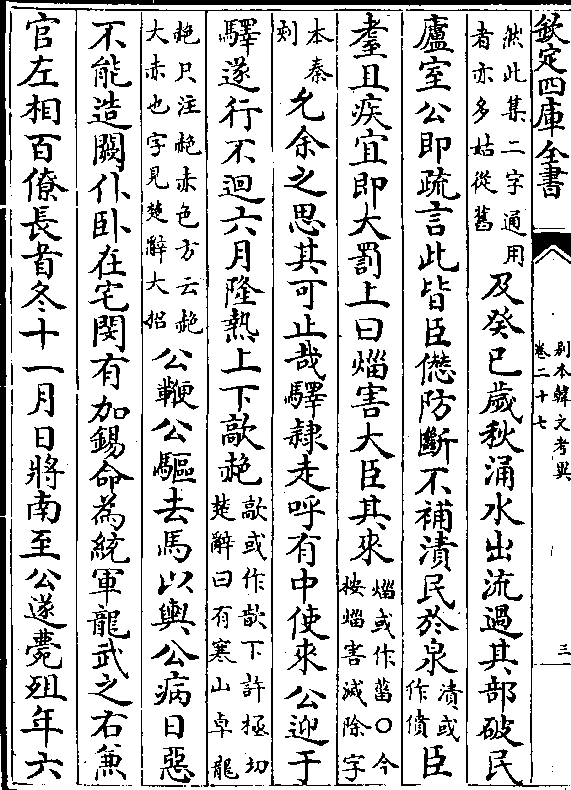 欽定四庫全書
別本韓文考異
卷二十七
三
然此某二字通用
者亦多姑從舊
及癸巳歲秋涌水出流過其部破民
廬室公即疏言此皆臣儯防斷不補漬民於泉
漬或
作債
臣
耋且疾宜即大罰上曰㷅害大臣其來
㷅或作菑○今
按㷅害滅除字
本秦
刻
允余之思其可止哉驛隸走呼有中使來公迎于
驛遂行不迴六月隆熱上下歊赩
歊或作歆下許極切
楚辭曰有寒山卓龍
赩只注赩赤色方云赩
大赤也字見楚辭大招
公鞭公驅去馬以輿公病日惡
不能造闕仆卧在宅閔有加錫命為統軍龍武之右兼
官左相百僚長首冬十一月日將南至公遂薨殂年六